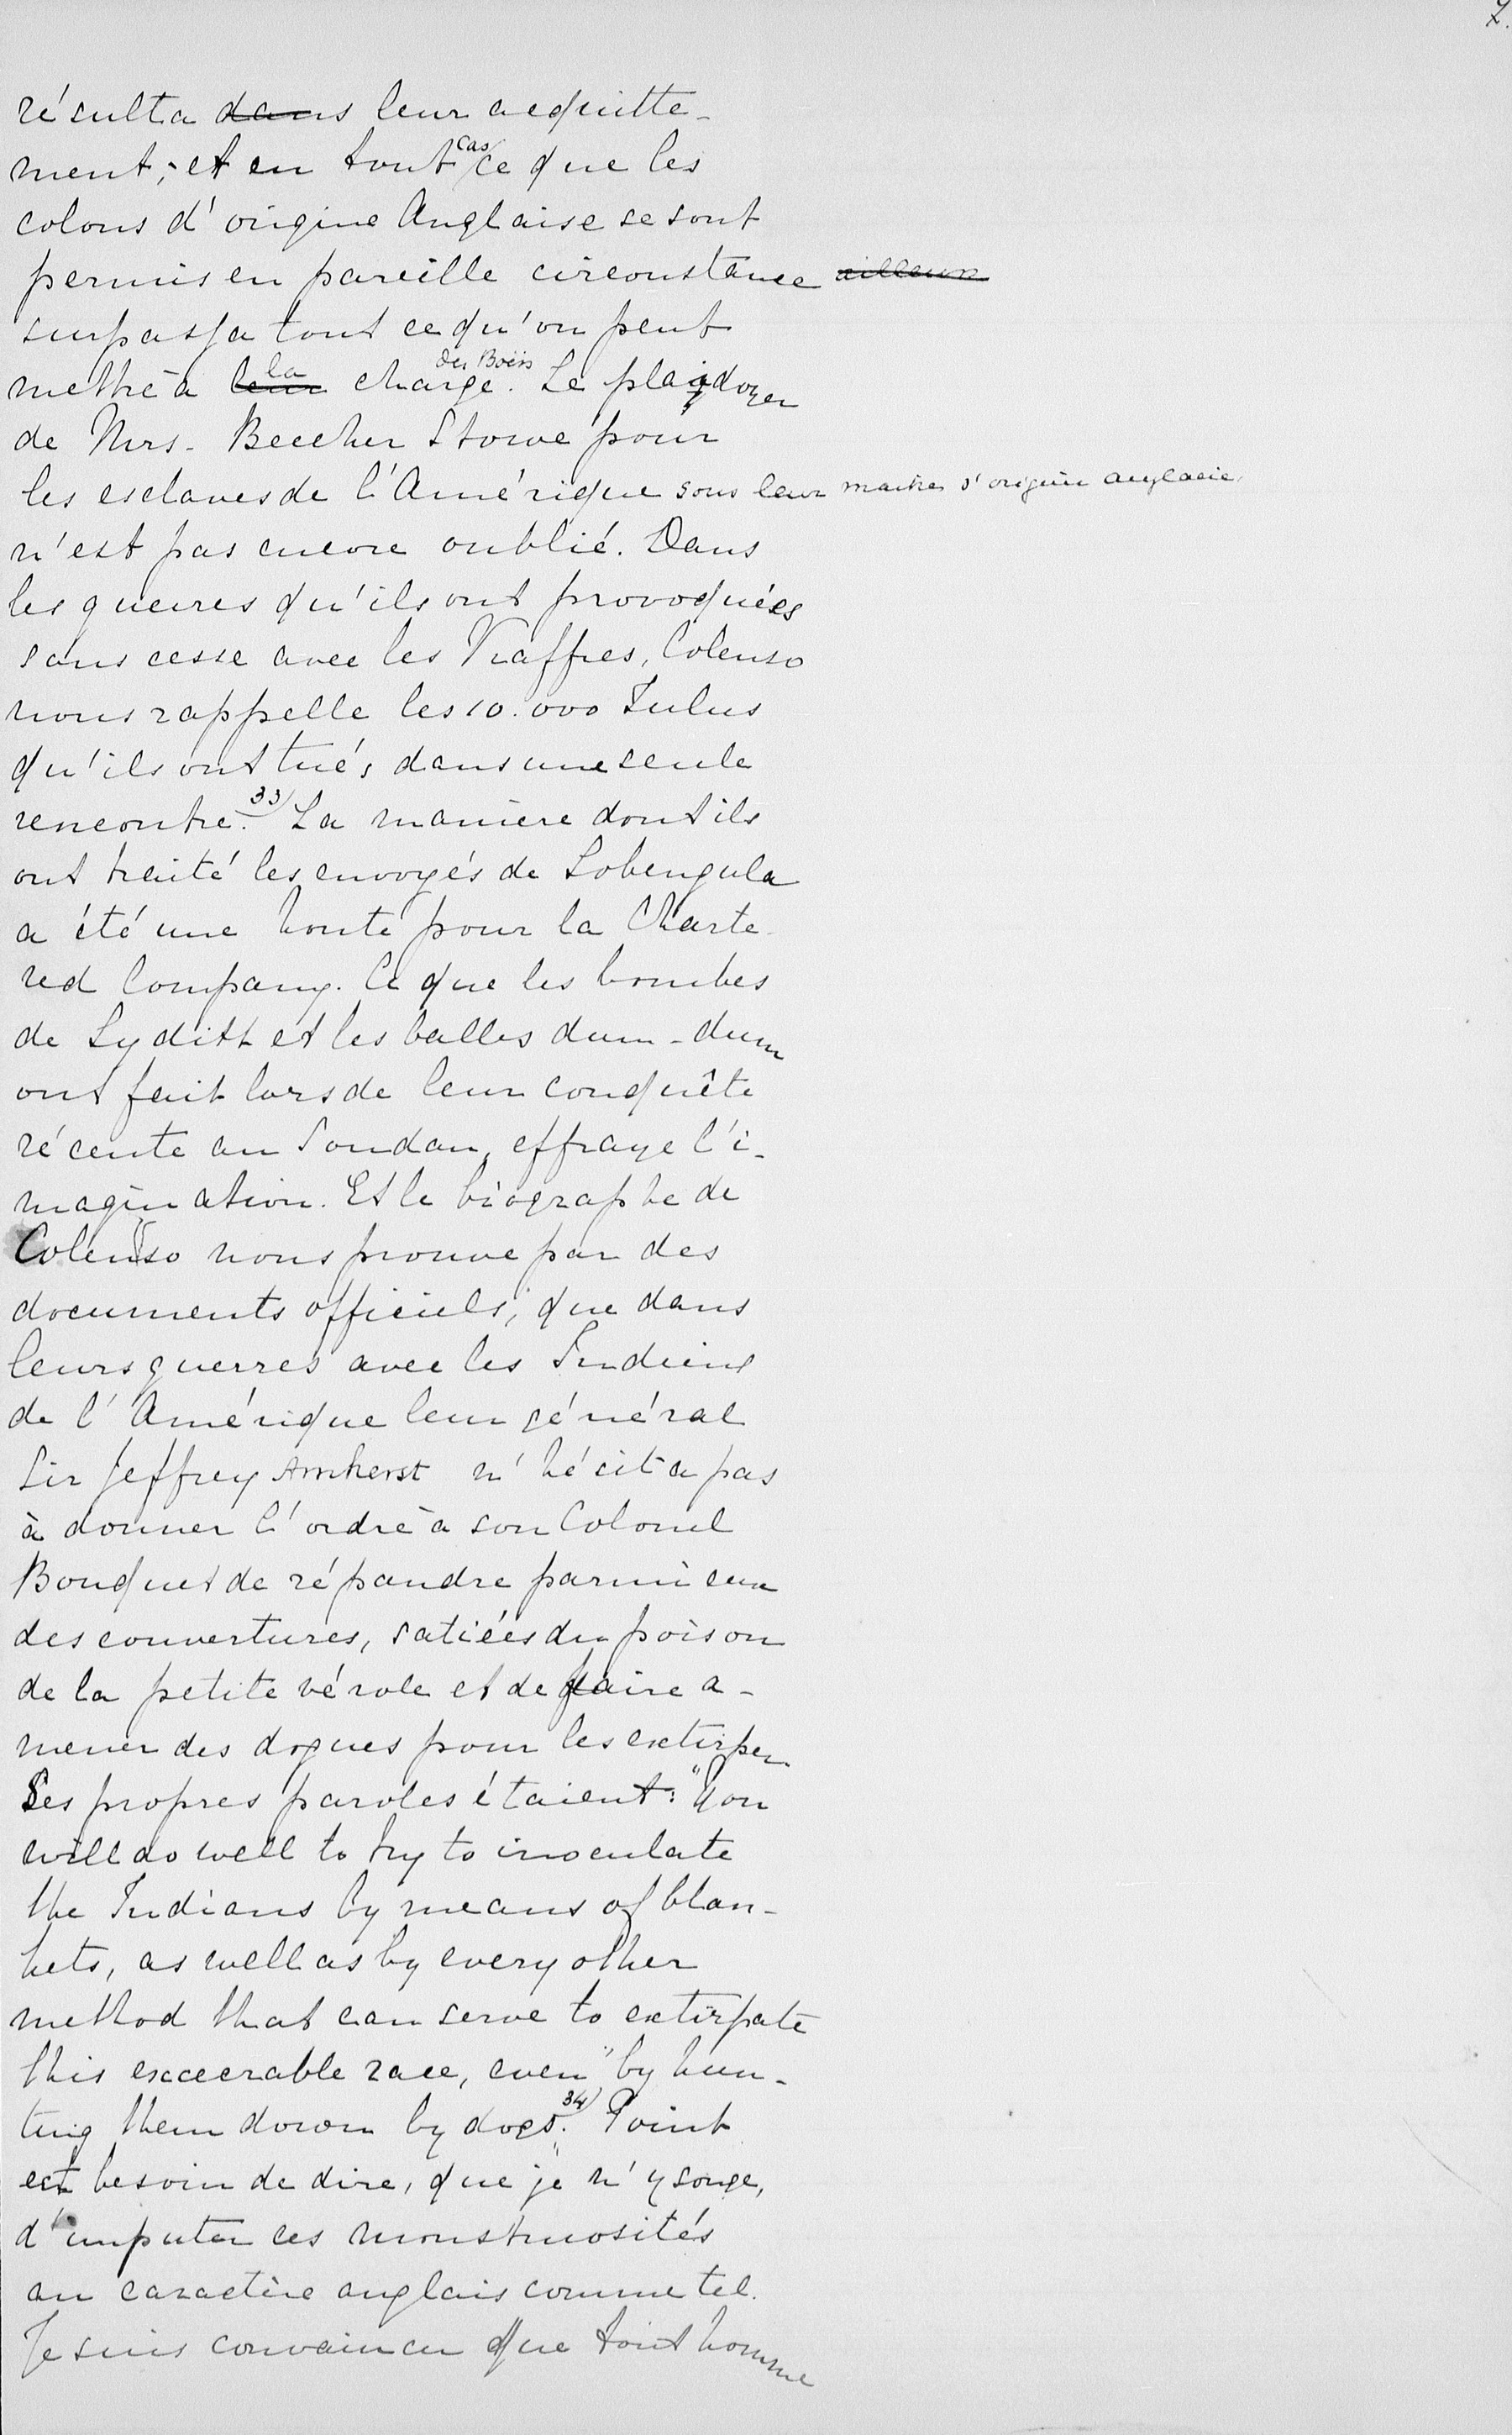 résulta dans leur acquitte-
ment; et en tout cas ce que les
colons d'origine Anglaise se sont
permis en pareille circonstance ailleurs
surpassa tout ce qu'on peut
mettre à leur la charge des Boërs. Le plaidoyer
de Mrs. Beecher Stowe pour
les esclaves de l'Amérique sous leur maitres d'origine anglaise,
n'est pas encore oublié. Dans
les guerres qu'ils ont provoquées
sans cesse avec les Kaffres, Colenso
nous rappelle les 10.000 Zulus
qu'ils ont tués dans une seule
rencontre. 33) La manière dont ils
ont traité les envoyés de Lobengula
a été une honte pour la Charte-
red Company. Ce que les bombes
de Lyditt et les balles dum-dum
ont fait lors de leur conquête
récente au Soudan, effraye l'i-
magination. Et le biographe de
Colenso nous prouve par des
documents officiels, que dans
leurs guerres avec les Indiens
de l'Amérique leur général
Sir Jeffrey Amherst n'hésita pas
à donner l'ordre à son Colonel
Bouquet de répandre parmi eux
des couvertures, satiées du poison
de la petite vérole et de faire a-
mener des dogues pour les extirper
Ses propres paroles étaient: "You
will do well to try to inoculate
the Indians by means of blan-
kets, as well as by every other
method that can serve to extirpate
this excecrable race, even" by hun-
ting them down by dogs." 34) Point
est besoin de dire, que je n'y songe,
d'imputer ces monstruosités
au caractère anglais comme tel.
Je suis convaincu que tout homme